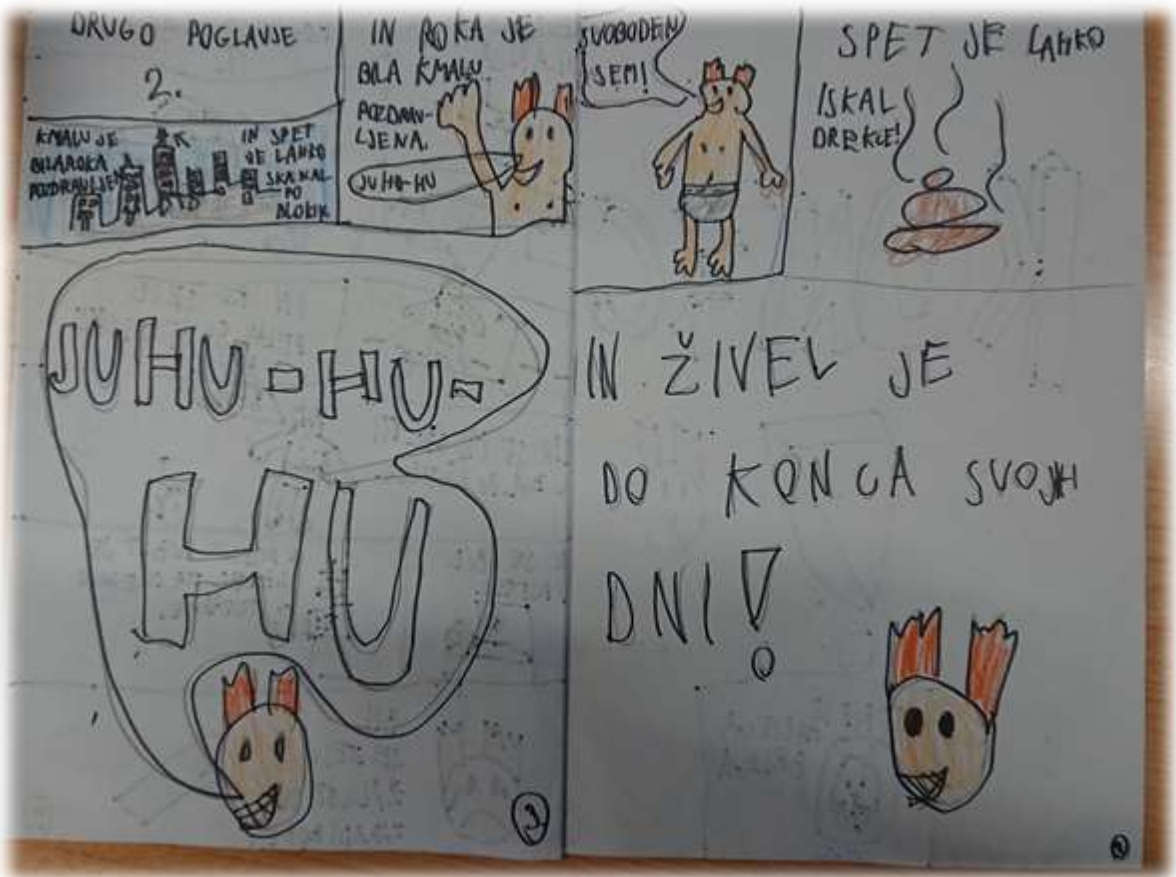 DRUGO POGLAVJE
2.
KMALU JE
BILA ROKA
POZDRAVLJENA
IN SPET
JE LAHKO
SKAKAL
PO
BLOKIH
IN ROKA JE
BILA KMALU
POZDRAV-
LJENA.
JUHU-HU
JUHU-HU-
HU
3
SVOBODEN
SEM!
SPET JE LAHKO
ISKAL
DREKCE!
IN ŽIVEL JE
DO KONCA SVOJIH
DNI!